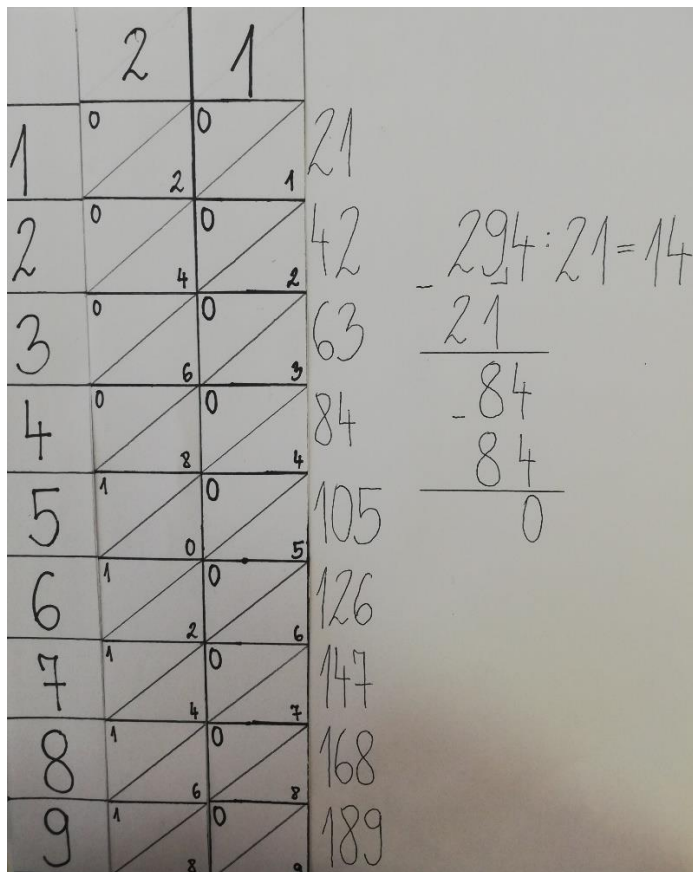 2 1
1 0 2 0 1 21
2 0 4 0 2 42
3 0 6 0 3 63
4 0 8 0 4 84
5 1 0 0 5 105
6 1 2 0 6 126
7 1 4 0 7 147
8 1 6 0 8 168
9 1 8 0 9 189
294:21=14
- 21
84
- 84
0